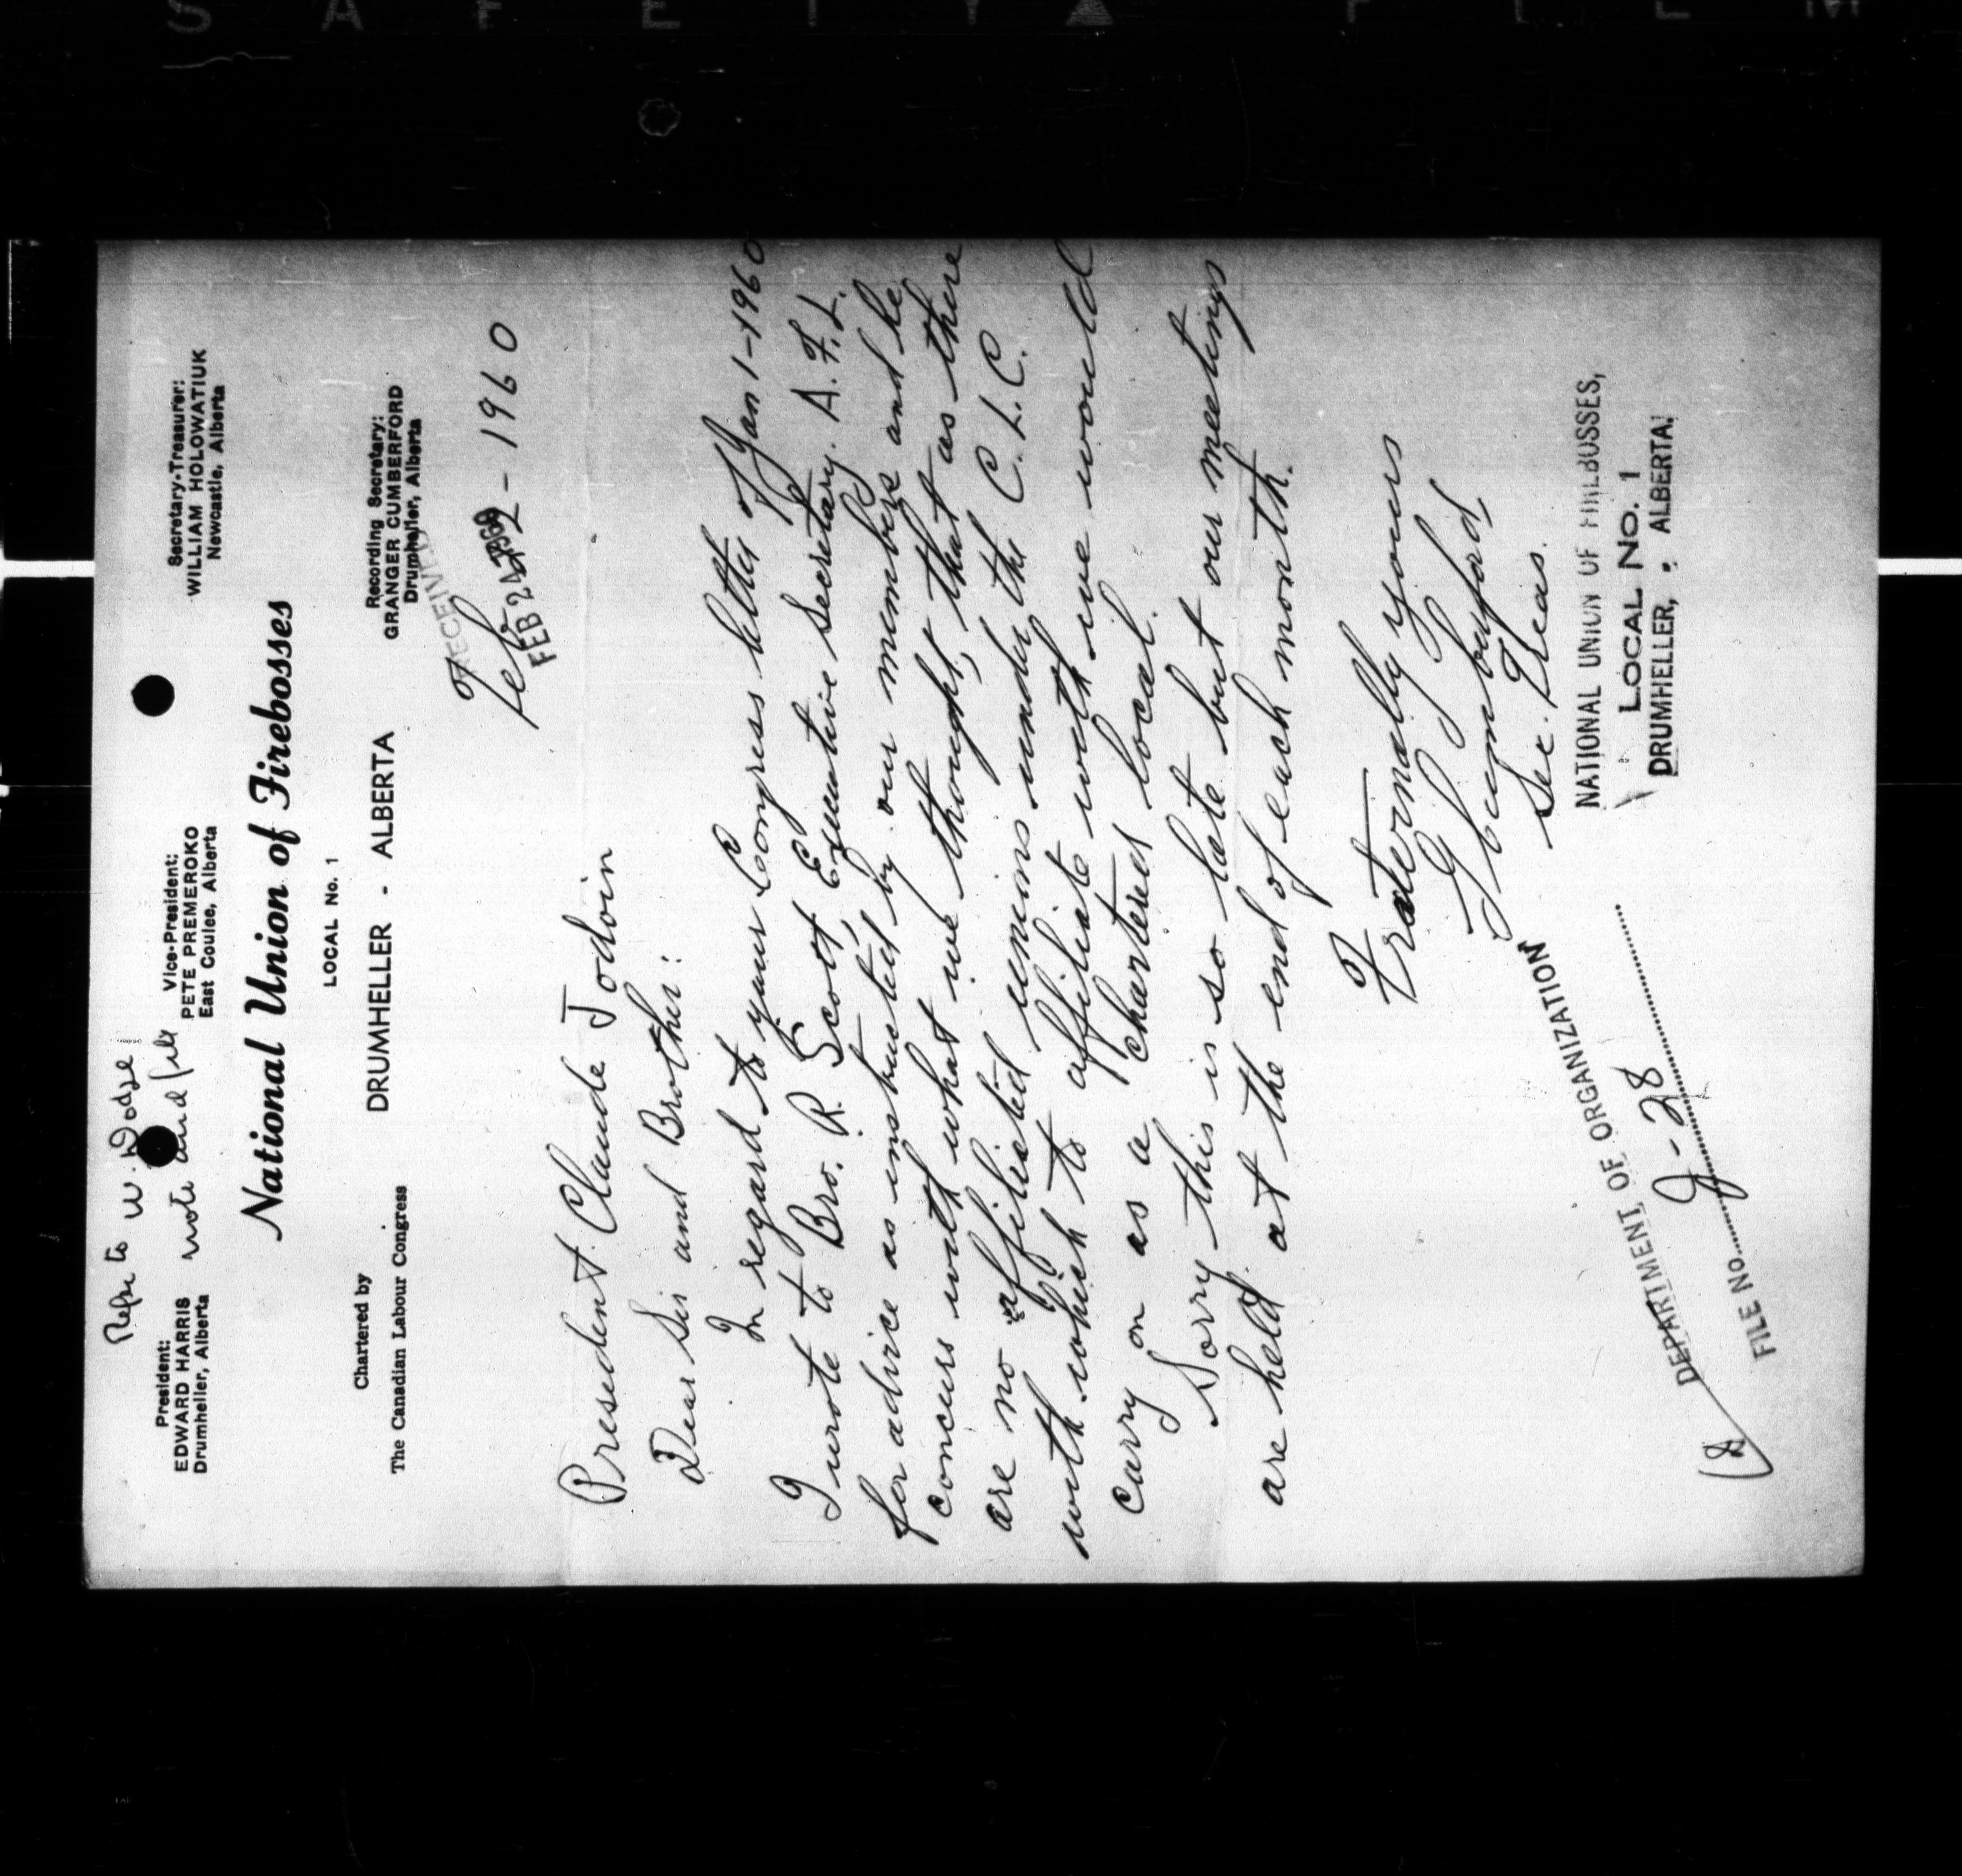 SAFETY FILM
Refer to W. Dodge
note and file
President:
EDWARD HARRIS
Drumheller, Alberta
Vice-President:
PETE PREMEROKO
East Coulee, Alberta
Secretary-Treasurer:
WILLIAM HOLOWATIUK
Newcastle, Alberta
National Union of Firebosses
LOCAL No. 1
Chartered by
The Canadian Labour Congress
DRUMHELLER - ALBERTA
Recording Secretary:
GRANGER CUMBERFORD
Drumheller, Alberta
RECEIVED
FEB 24 1960
Feb - 1960
President. Claude Jodoin
Dear Sir and Brother:
In regard to your Congress letter of Jan 1-1960
I wrote to Bro. R. Scott, Executive Secretary. A.F.L.
for advice as instructed by our members and he
concurs with what we thought, that as there
are no affiliated unions under the C.L.C.
with which to affiliate with we would
carry on as a chartered local.
Sorry this is so late but our meetings
are held at the end of each month.
Fraternally yours
G Cumberford,
Sec. Treas.
NATIONAL UNION OF FIREBOSSES,
LOCAL No. 1
DRUMHELLER, : ALBERTA.
DEPARTMENT OF ORGANIZATION
FILE NO. 28